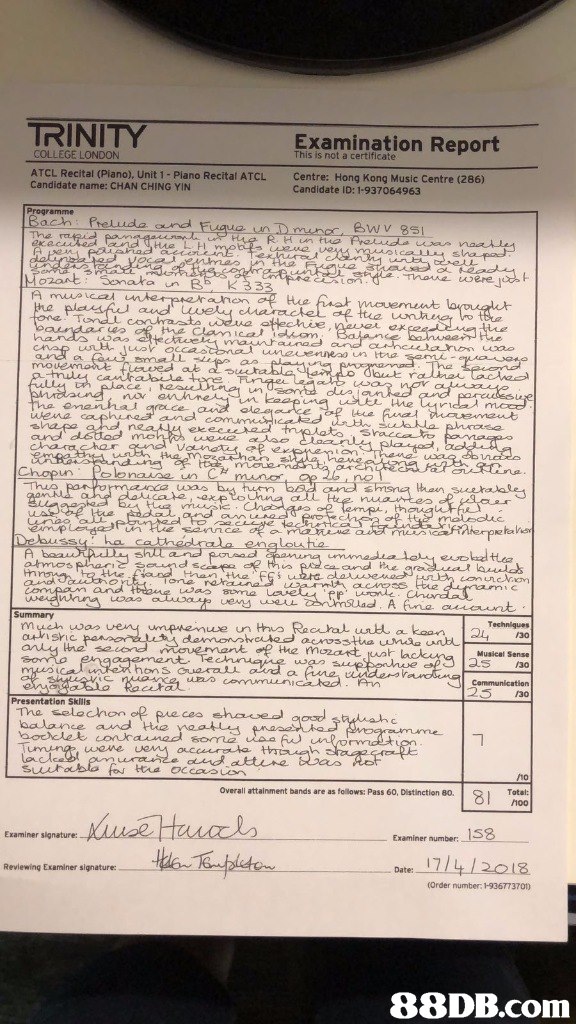 TRINITY
COLLEGE LONDON
Examination Report
This is not a certificate
ATCL Recital (Piano), Unit 1 - Piano Recital ATCL
Candidate name: CHAN CHING YIN
Centre: Hong Kong Music Centre (286)
Candidate ID: 1-937064963
Programme
Bach: Prelude and Fugue in D minor, BWV 851
The rapid passagework in the R.H in the Prelude was neatly
executed and the L.H mobile were very musically shaped
Mozart: Sonata in Bb, K333
A musical interpretation of the first movement brought
the playful and lively character of the writing to the
fore. Tonal contrasts were effective, never exceeding the
boundaries of the Classical idiom. Balance between the
hands was effectively maintained and articulation was
crisp with just occasional unevenness in the semi-quavers
and a few small slips as playing progressed. The second
movement flowed at a suitable tempo but rather lacked
a truly cantabile tone. Finger legato was not always
fully in place, resulting in some disjointed and percussive
phrasing, not entirely in keeping with the lyrical mood.
The essential grace and elegance of the final movement
were captured and communicated with subtle phrase
shape and neatly executed triplets. Staccato passages
and dotted were also clearly played, adding
character and variety of expression. There was obvious
empathy with the Mozartian style here and
understanding of the movement's architectural outline.
Chopin: Polonaise in C# minor op 26, no 1
This performance was by turn, bold and strong then, suitably
gentle and delicate, exploring all the nuances of
suggested by the music. Changes of tempi, thoughtful
use of the pedal, and projection of the melodic
lines all
employed in the service of a mature and musical interpretation
Debussy: La cathédrale engloutie
A beautifully still and poised opening immediately evoked the
atmospheric soundscape of this piece and the gradual builds
through to the f and then the ff's were delivered with conviction
and authority. Tone retained warmth across the dynamic
compass and there was some lovely 'pp' work. Chordal
weighting was always very well controlled. A fine account.
Summary
Much was very impressive in this Recital with a keen
artistic personality demonstrated across the whole with
only the second movement of the Mozart just lacking
some engagement. Technique was supportive of
musical intentions overall and a fine understanding
of stylistic nuance was communicated. An
enjoyable Recital.
Techniques
24 /30
Musical Sense
25 /30
Communication
25 /30
Presentation Skills
The selection of pieces showed good stylistic
balance and the neatly presented programme
booklet contained some useful information.
Timings were very accurate though stagecraft
lacked assurance and attire was not
suitable for the occasion
7
/10
Overall attainment bands are as follows: Pass 60, Distinction 80.
81 Total: /100
Examiner signature:
Examiner number: 158
Reviewing Examiner signature: Helen Templeton
Date: 17/4/2018
(Order number: 1-936773701)
88DB.com